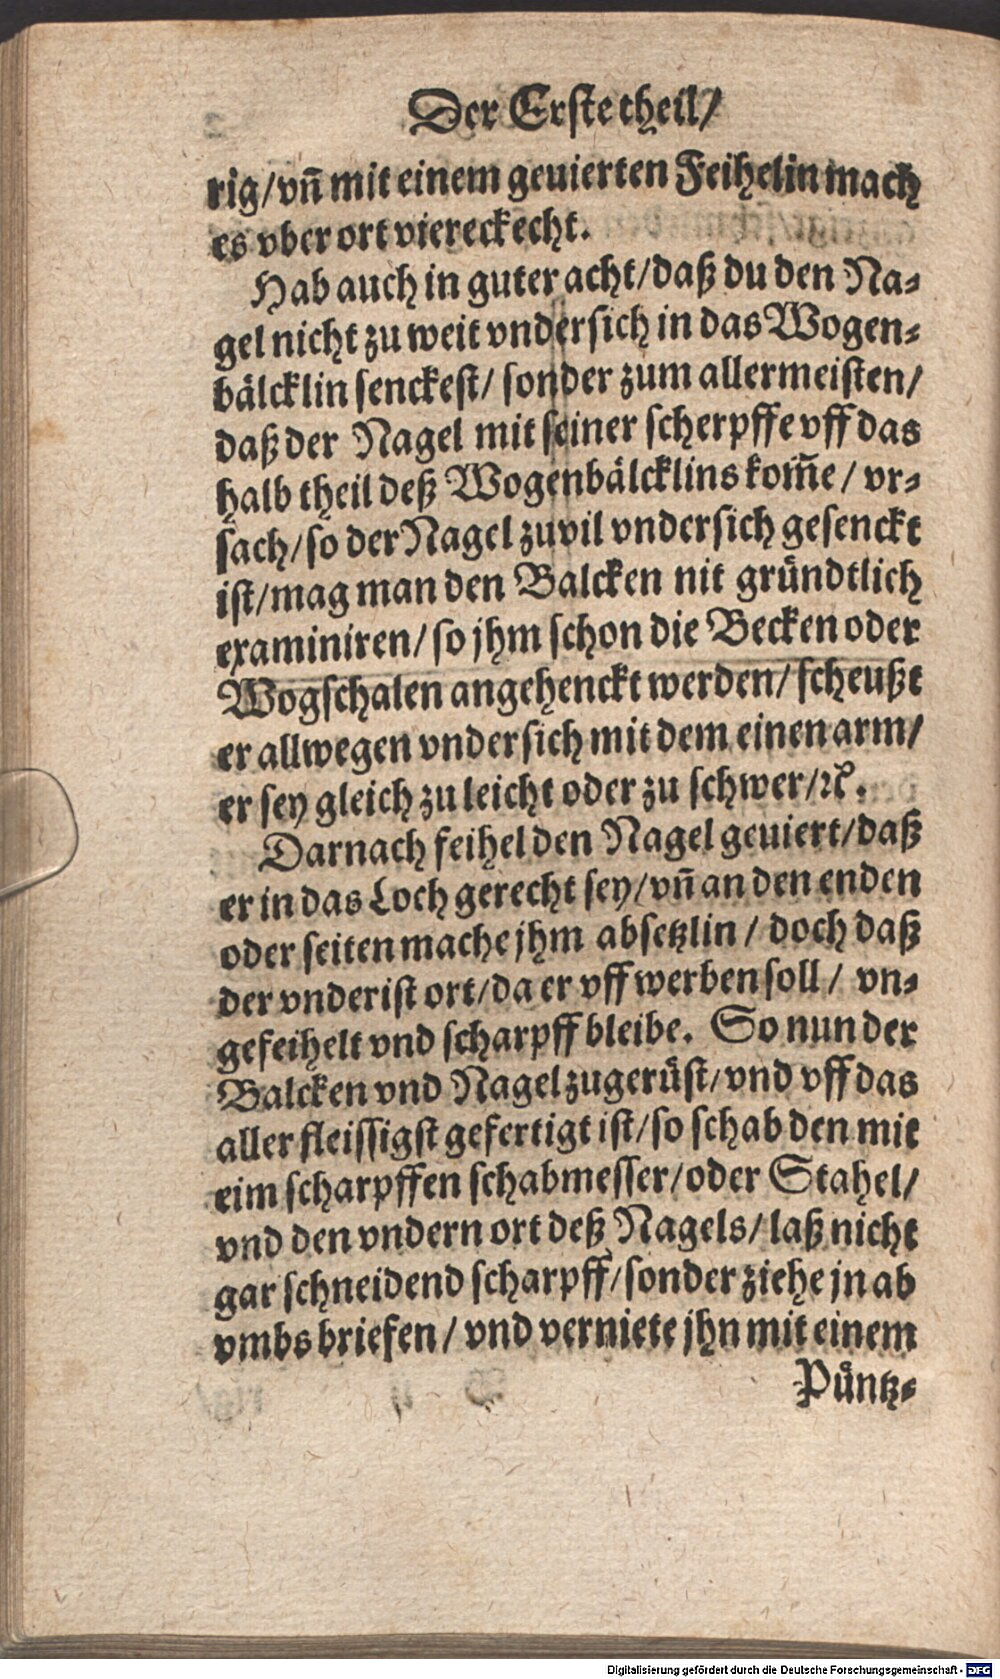 Der Erste theil/
rig/vn̄ mit einem geuierten Feihelin mach
es vber ort viereckecht.
Hab auch in guter acht/daß du den Na⸗
gel nicht zu weit vndersich in das Wogen⸗
bälcklin senckest/ sonder zum allermeisten/
daß der Nagel mit seiner scherpffe vff das
halb theil deß Wogenbälcklins kom̄e/ vr⸗
sach/so der Nagel zuvil vndersich gesenckt
ist/mag man den Balcken nit gründtlich
examiniren/so jhm schon die Becken oder
Wogschalen angehenckt werden/scheußt
er allwegen vndersich mit dem einen arm/
er sey gleich zu leicht oder zu schwer/ꝛc.
Darnach feihel den Nagel geuiert/daß
er in das Loch gerecht sey/vn̄ an den enden
oder seiten mache jhm absetzlin/ doch daß
der vnderist ort/da er vff werben soll/ vn⸗
gefeihelt vnd scharpff bleibe. So nun der
Balcken vnd Nagel zugerüst/vnd vff das
aller fleissigst gefertigt ist/so schab den mit
eim scharpffen schabmesser/oder Stahel/
vnd den vndern ort deß Nagels/laß nicht
gar schneidend scharpff/sonder ziehe jn ab
vmbs briefen/ vnd verniete jhn mit einem
Püntz⸗
Digitalisierung gefördert durch die Deutsche Forschungsgemeinschaft - DFG